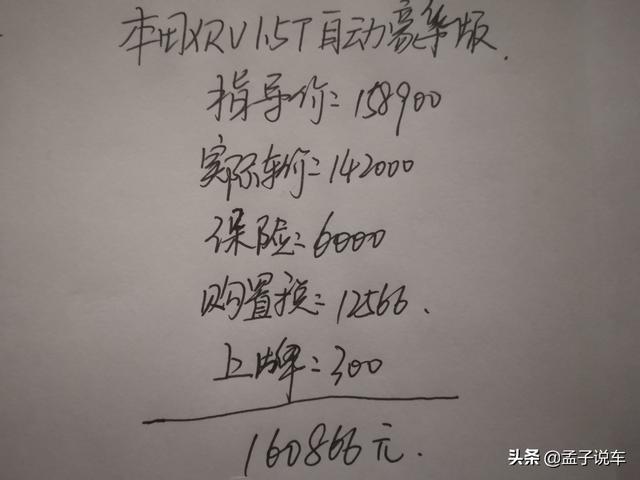 本田XRV1.5T自动豪华版.
指导价=158900
实际车价=142000
保险=6000
购置税=12566.
上牌=300
160866元.
头条 @孟子说车